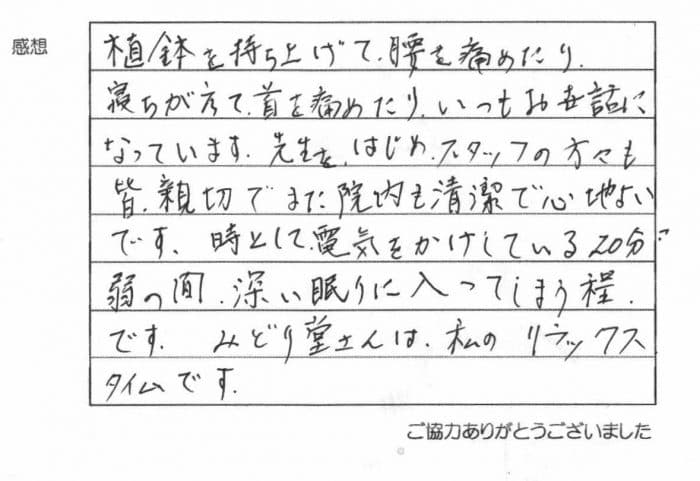 感想
植鉢を持ち上げて、腰を痛めたり、
寝ちがえて、首を痛めたり、いつもお世話に
なっています。先生を、はじめ、スタッフの方々も
皆、親切でまた院内も清潔で心地よい
です、時として、電気をかけしている20分
弱の間、深い眠りに入ってしまう程、
です。みどり堂さんは、私のリラックス
タイムです。
ご協力ありがとうございました